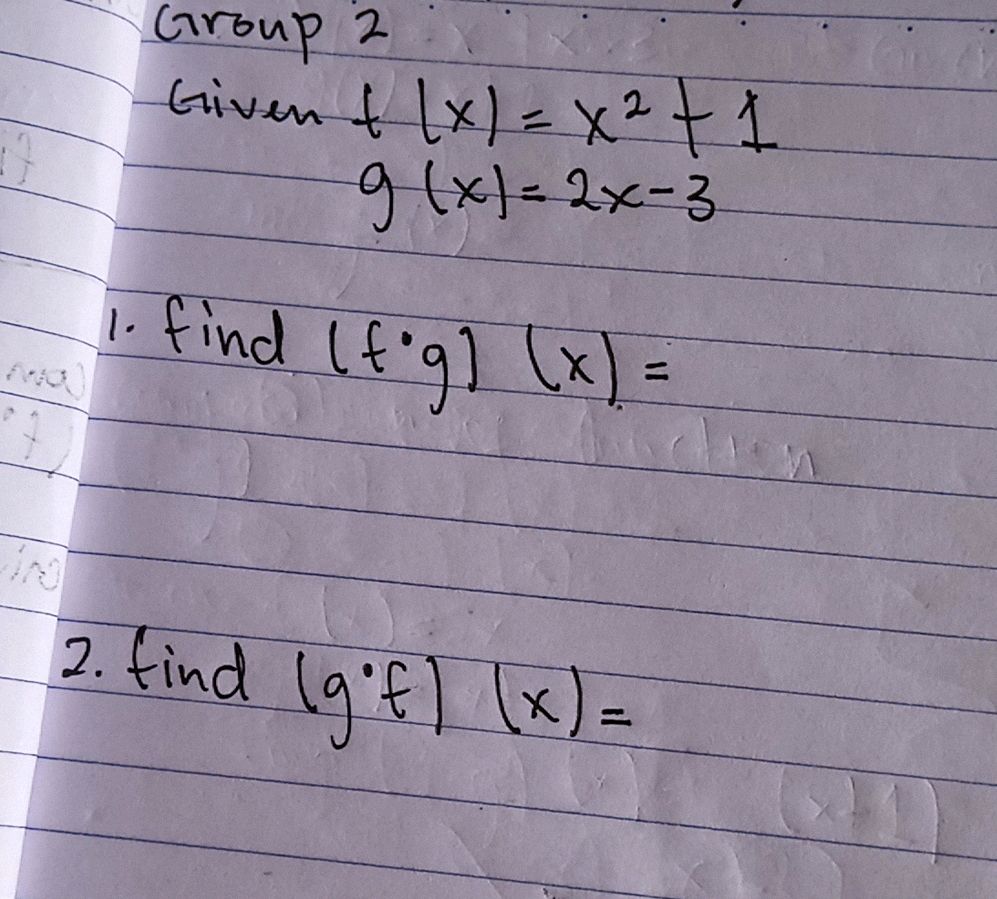 Group 2
Given f(x) = x² + 1
g(x) = 2x-3
1. find (f∘g) (x) =
2. find (g∘f) (x) =